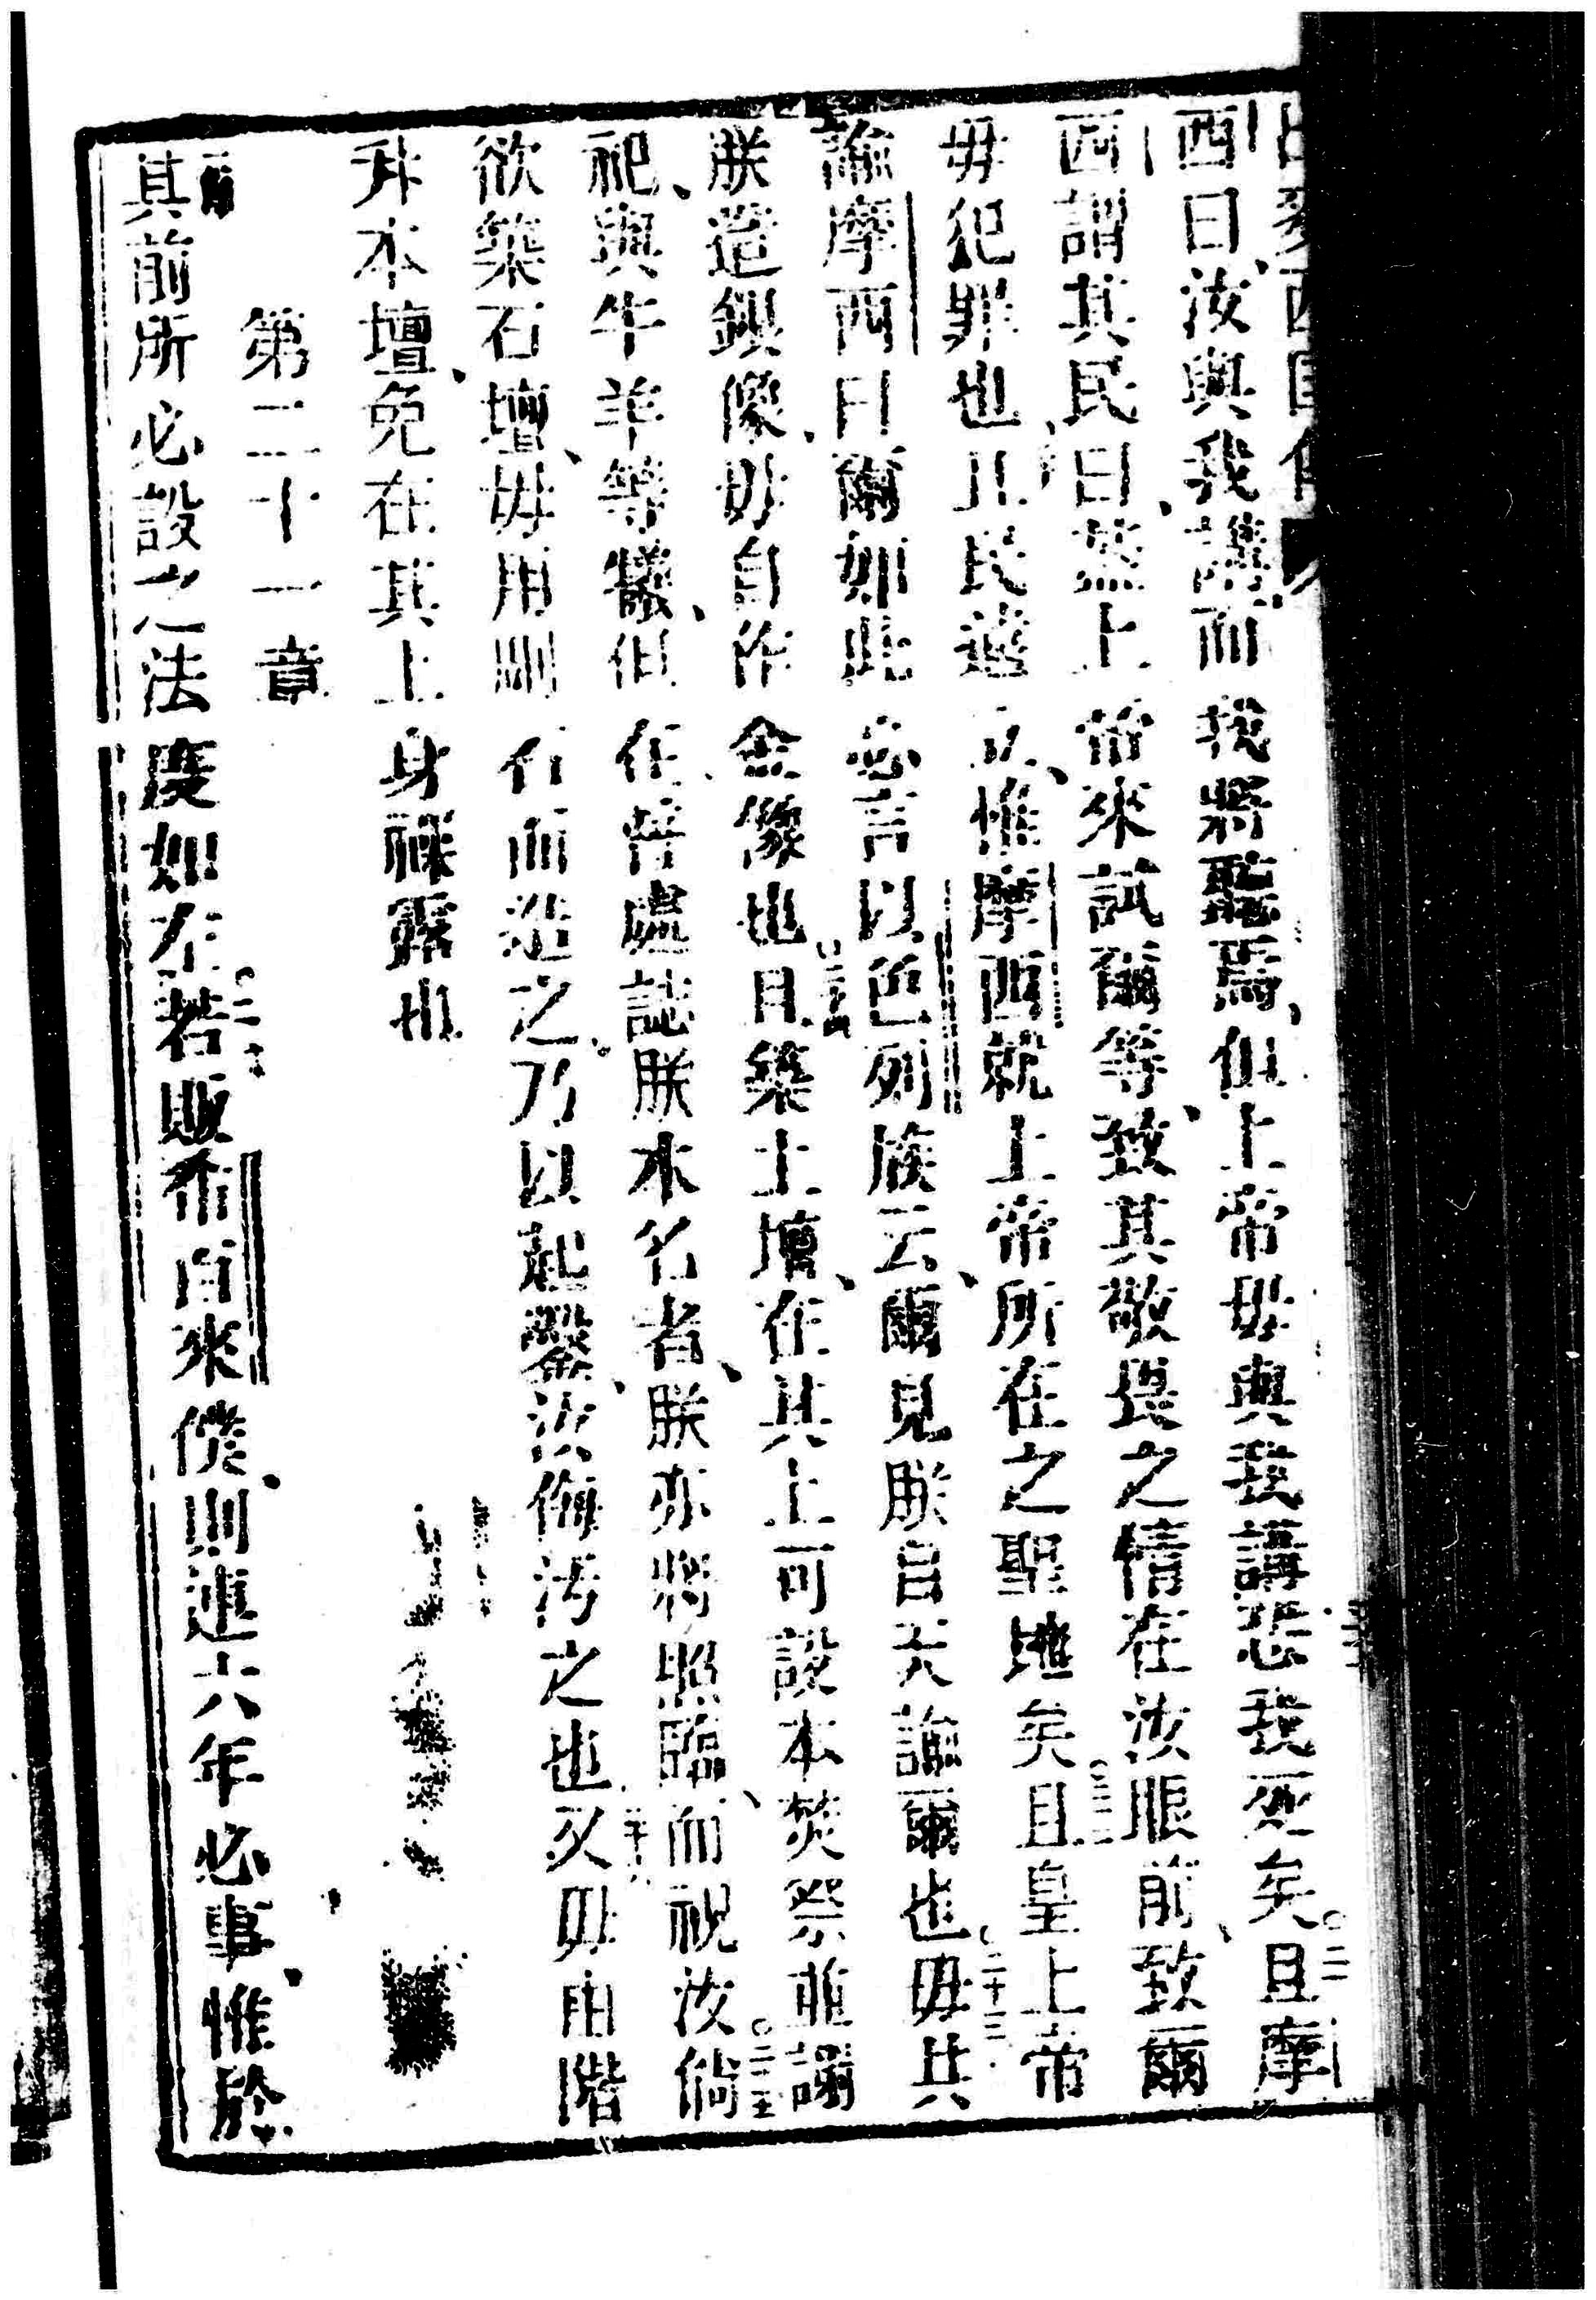 西曰、汝與我講、而我將聽焉、但上帝毋與我講、恐我死矣。○二十且摩
西謂其民曰、蓋上帝來試爾等、致其敬畏之情在汝眼前、致爾
毋犯罪也、且民遠立、惟摩西就上帝所在之聖地矣。○二十二且皇上帝
諭摩西曰、爾如此必言以色列族云、爾見朕自天諭爾也。○二十三毋共
朕造銀像、毋自作金像也。○二十四且築土壇、在其上可設本焚祭並謝
祀、與牛羊等犧、但在普處誌朕本名者、朕亦將照臨、而祝汝。○二十五倘
欲築石壇、毋用剛石而造之、乃以起鑿、汝侮污之也。二十六又毋由階
升本壇、免在其上身裸露也
第二十一章
其前所必設之法度如左。○二十若販希百來僕、則連六年必事、惟於